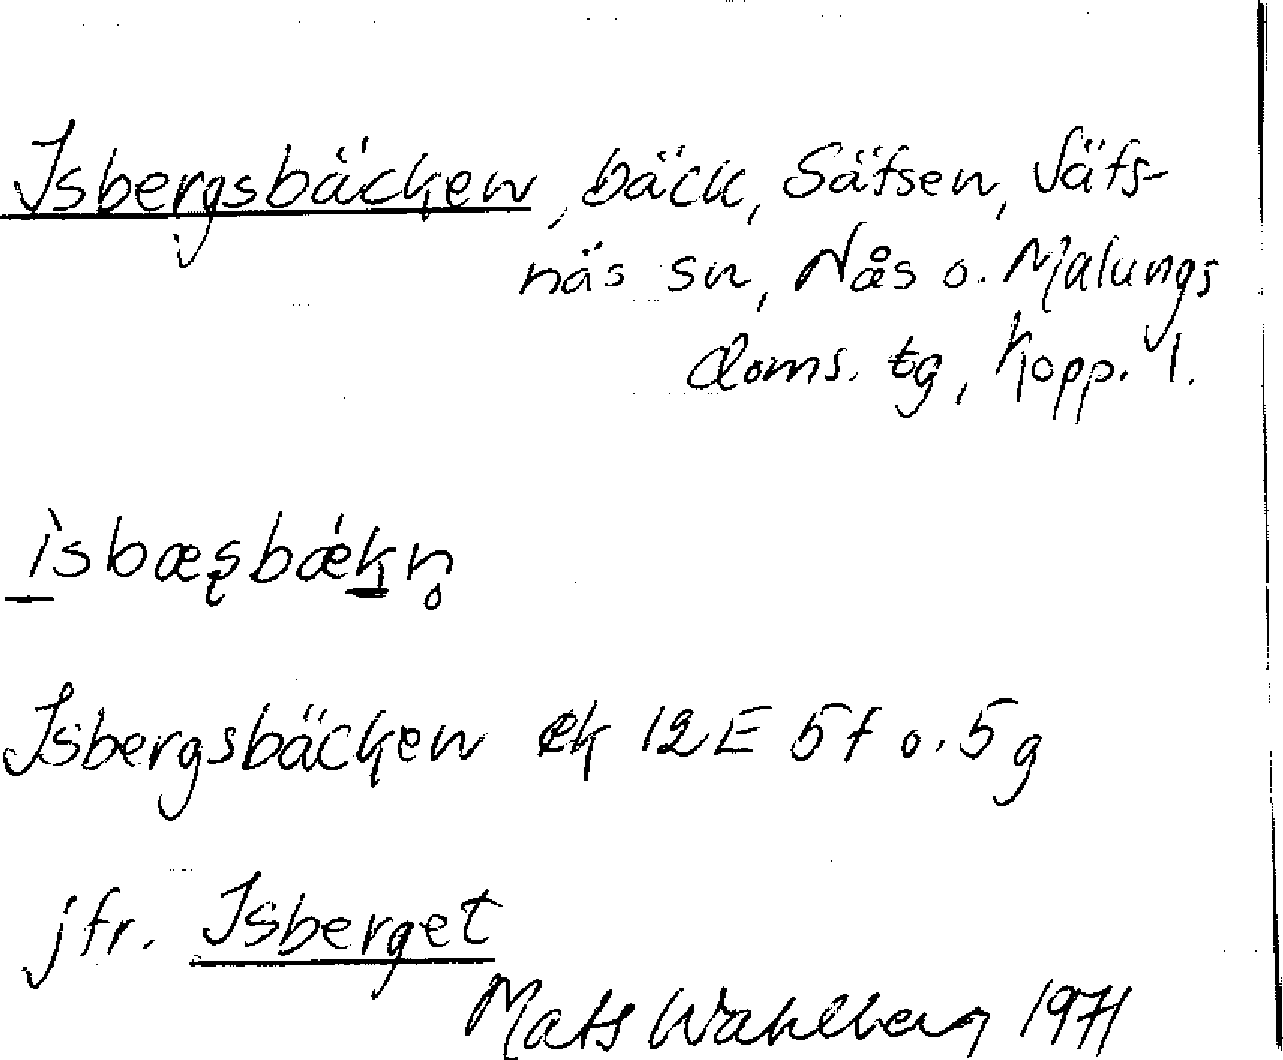 Isbergsbäcken, bäck, Säfsen, Säfs-
näs sn, Nås o. Malungs
doms. tg, Kopp. l.
ìsbæʂbǽkn̥
Isbergsbäcken ek 12E 5f o. 5g
jfr. Isberget
Mats Wahlberg 1971